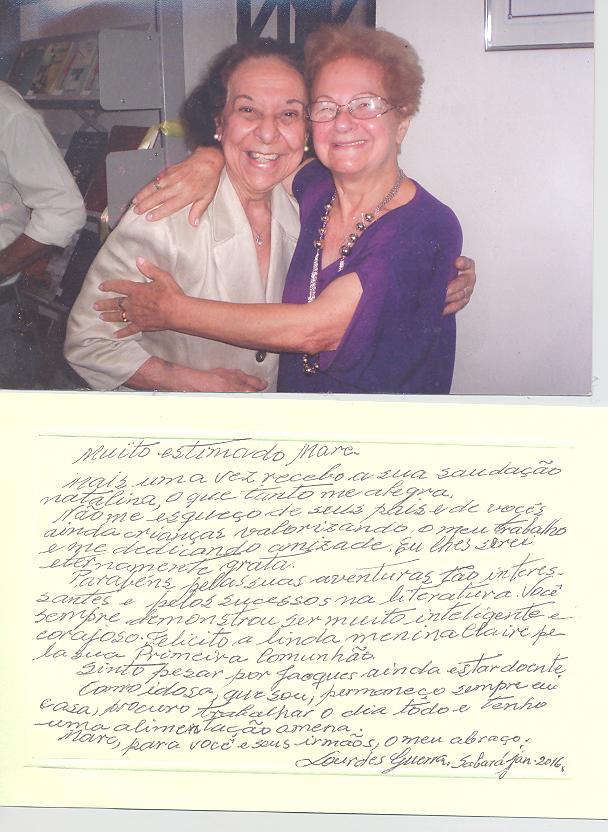 Muito estimado Marc
Mais uma vez recebo a sua saudação
natalina, o que tanto me alegra.
Não me esqueço de seus pais e de vocês
ainda crianças valorizando o meu trabalho
e me dedicando amizade. Eu lhes serei
eternamente grata.
Parabéns pelas suas aventuras tão interes-
santes e pelos sucessos na literatura. Você
sempre demonstrou ser muito inteligente e
corajoso. Felicito a linda menina Claire pe-
la sua Primeira Comunhão.
Sinto pesar por Jacques ainda estar doente.
Como idosa, que sou, permaneço sempre em
casa, procuro trabalhar o dia todo e tenho
uma alimentação amena.
Marc, para você e seus irmãos, o meu abraço.
Lourdes Guerra. Sabará jan. 2016.